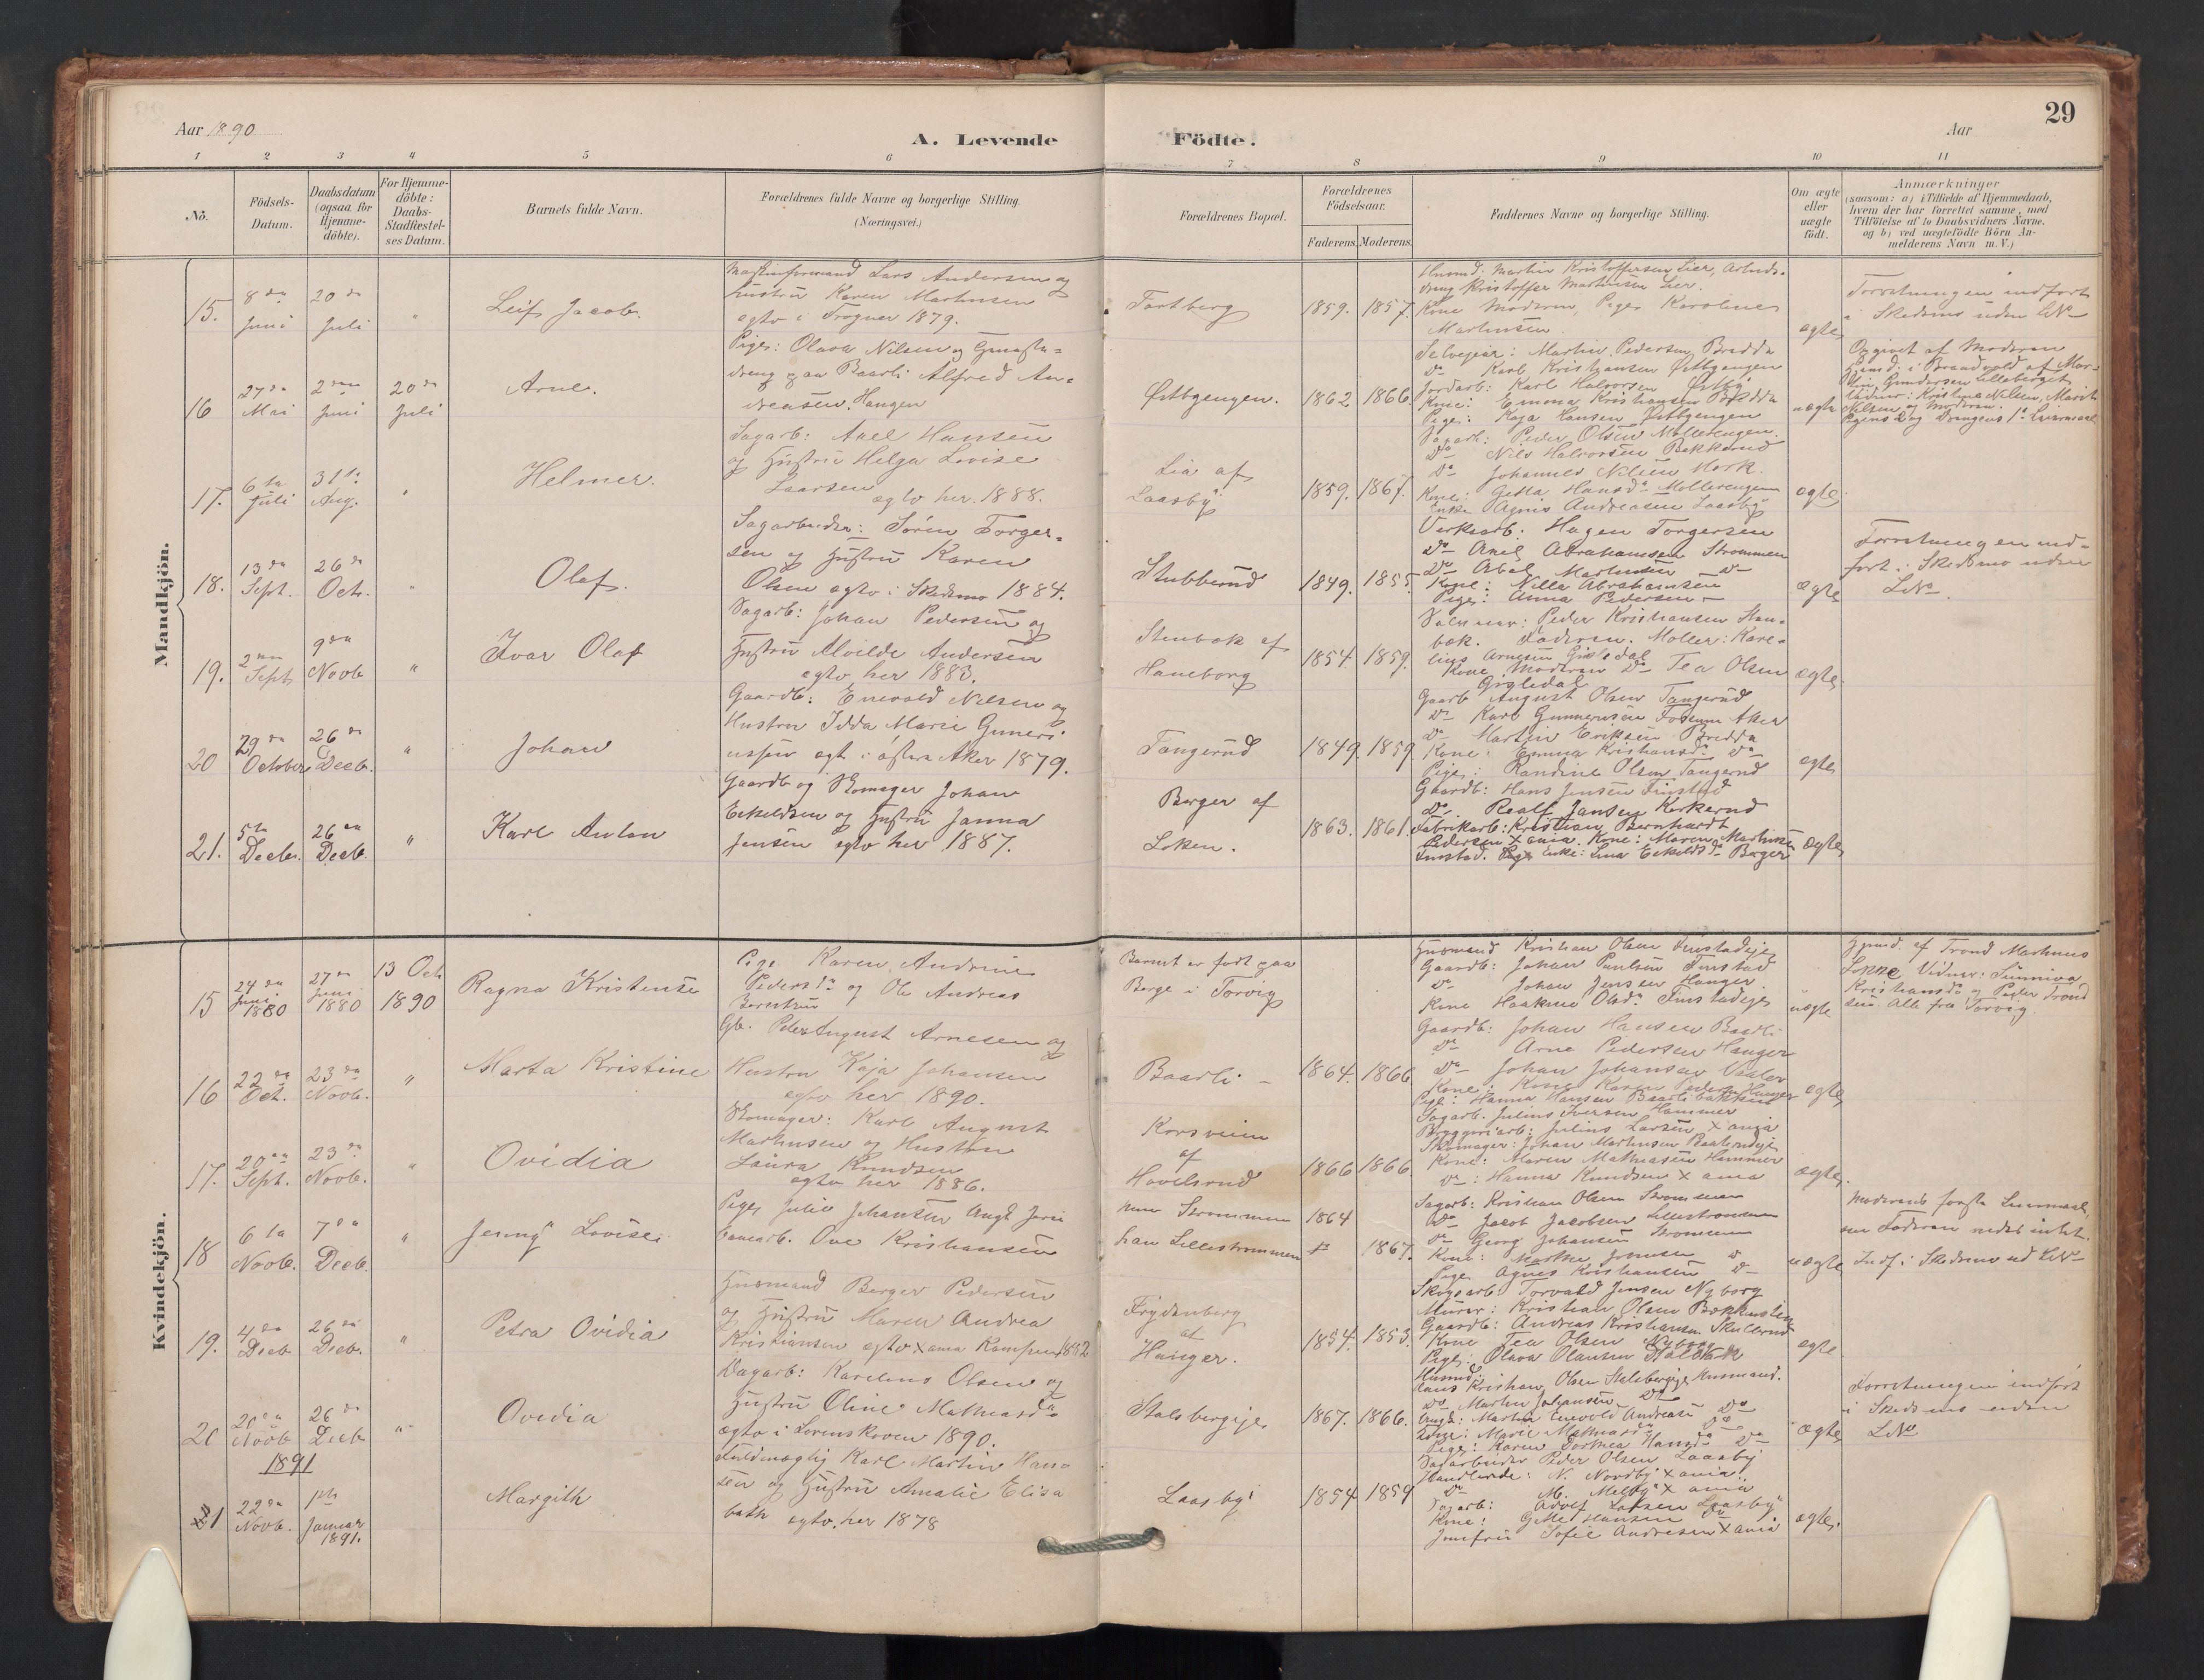 29
Aar 1890
A. Levende Födte.
Aar
1 2 3 4 5 6 7 8 9 10 11
No.
Födsels-Datum.
Daabsdatum (ogsaa for Hjemme-döbte).
For Hjemme-döbte: Daabs-Stadfæstel-ses Datum.
Barnets fulde Navn.
Forældrenes fulde Navne og borgerlige Stilling.
(Næringsvei.)
Forældrenes Bopæl.
Forældrenes Födselsaar.
Faderens. Moderens.
Faddernes Navne og borgerlige Stilling.
Om ægte eller uægte födt.
Anmærkninger
(saasom: a) i Tilfælde af Hjemmedaab,
hvem der har forrettet samme, med
Tilföielse af to Daabsvidners Navne.
og b) ved uægtefödte Börn An-
melderens Navn m. V.)
Mandkjön.
15. 8de Juni
20de Juli
"
Leif Jacob.
Lars Andersen og
Hustru Karen Martinsen
egtv i Frogner 1879.
1859. 1857.
Martin Kristoffersen
Kristoffer Martinsen
Kone Moderen, Pige Karoline
Martinsen
ægte
Forretningen indført
i Skedsmo uden LNo
16
27de Mai
2den Juni
20de Juli
Arne.
Pige: Olava Nilsen og
dreng paa Baarli Alfred An-
dreasen Haugen
Østbyengen.
1862 1866.
Selveier: Martin Pedersen Bredda
Do Karl Kristiansen Østbyengen
Jordarb: Karl Halvorsen Østby
Kone: Emma Kristiansen Bredda
Pige: Kaja Hansen Østbyengen
uægte
Opgivet af Moderen
17.
6te Juli
31te Aug.
"
Helmer.
Sagarb: Axel Hansen
og Hustru Helga Lovise
Laursen
egtv her. 1888.
Lia af
Laasby
1859. 1867.
Sagarb: Peder Olsen Møllerengen
Do Nils Halvorsen Bekkerud
Do Johannes Nilsen Mork.
Kone: Hansd. Møllerengen
Enke Agnis Andreasen Laasby
ægte
18.
13de Sept.
26de Oct.
"
Olaf.
Sagarbeider: Søren Torger-
sen og Hustru Karen
Olsen egtv i Skedsmo 1884.
Stubberud
1849. 1855.
Verksarb. Hagen Torgersen
Do Axel Abrahamsen Strømmen
Do Abel Martinsen Do
Kone: Nilla Abrahamsen
Pige: Anna Pedersen
ægte
Forretningen ind-
ført i Skedsmo uden
LNo
19.
2den Sept
9de Novb
"
Ivar Olaf
Sagarb: Johan Pedersen og
Hustru Alvilde Andersen
egtv her 1883.
Stenbæk af
Haneborg
1854. 1859.
Peder Kristiansen Sten-
bæk. Faderen. Møller: Kare-
lius Arnesen Gisledal
Kone Moderen Do Tea Olsen
Gisledal
ægte.
20
29de October
26de Decb.
"
Johan
Gaardb: Enevold Nilsen og
Hustru Idda Marie
egt i østre Aker 1879.
Tangerud
1849. 1859.
Gaarb August Olsen Tangerud
Do Karl Gunnersen Fossum Aker
Do Martin Eriksen Bredda
Kone: Emma Kristiansd. Do
Pige: Randine Olsen Tangerud
ægte
21.
5te Decbr.
26de Decb.
"
Karl Anton
Gaardb og Skomager Johan
Eskeldsen og Hustru Janna
Jensen egtv her 1887.
Berger af
Løken.
1863. 1861.
Gaardb: Hans Jensen Finstad
Do Roalf Jansen Kirkerud
Fabrikarb: Kristian Bernhardt
Pedersen X ania. Kone: Maren Martinsen
Finstad. Enke: Lina Eskeldsd. Berger
ægte
Kvindekjön.
15
24de Juni 1880
27de Juni 1880
13 Oct 1890
Ragna Kristense
Pige Karen Andrine
Pedersd. og Ole Andreas
Berntsen
Barnet er født paa
Berge i Torvig
Husmand Kristian Olsen Finstadeje
Gaardb: Johan Paulsen Finstad
Do Johan Jensen Hauger
Kone Haakine Olsd. Finstadeje
uægte
Hjmd. af Trond Martinus
Vidner: Sunniva
Kristiansd. og Peder Trond
sen. Alle fra Torvig
16
22de Oct.
23de Novb.
"
Marta Kristine
Gb. Peter August Arnesen og
Hustru Kaja Johansen
egtv her 1890.
Baarli
1864. 1866
Gaardb: Johan Hansen Baarli
Do Arne Pedersen Hauger
Do Johan Johansen Vaaler
Kone: Kone Karen Pedersen Hauger
Pige: Hanna Hansen Baarlibakken
ægte
17.
20de Sept.
23de Novb.
"
Ovidia
Skomager: Karl August
Martinsen og Hustru
Laura Knudsen
egtv her 1886.
Korsveien
af
Hovelsrud
1866 1866
Sagarb. Julius Iversen Hammer
Bryggeriarb: Julius Larsen X ania
Skomager: Johan Martinsen
Kone: Maren Mathiasen Hammer
Do: Hanna Knudsen X ania
ægte.
18
6te Novb.
7de Decb.
"
Jenny Lovise.
Pige Julie Johansen
Ove Kristiansen
hun Strømmen
han Lillestrømmen
1864 1867.
Sagarb: Kristian Olsen Strømmen
Do Jacob Jacobsen Lillestrømmen
Do Georg Johansen Strømmen
Kone: Marthe Jonsen Do
Pige Agnes Kristiansen Do
uægte
Moderens første Leiermaal,
om Faderen vides intet.
Indf i Skedsmo ud LNo
19.
4de Decb
26de Decb.
"
Petra Ovidia
Husmand Berger Pedersen
og Hustru Maren Andrea
Kristiansen egtv X ania Kampen 1882
Frydenberg
af
Hauger.
1854. 1853.
Skogsarb: Torvald Jensen Nyborg
Murer: Kristian Olsen
Gaardb: Andreas Kristiansen Skullerud
Kone Tea Olsen Nyborg
Pige: Olava Olausen
ægte
20
20de Novb
26de Decb
"
Ovidia
Dagarb: Karelius Olsen og
Hustru Oline Mathiasd.
egtv i Lørenskoven 1890.
Stalsbergeje
1867. 1866.
Husmd:
Hans Kristian Olsen Stalsbergeje Husmand.
Do Martin Johansen Do
Ungk: Martin Enevold Andreasen Do
Enke: Marie Mathiasd. Do
Pige: Karen Dorthea Hansd. Do
ægte
Forretningen indført
i Skedsmo uden
LNo
1891
21
22de Novb.
1ste Januar 1891.
Margith
Fuldmægtig Karl Martin Han-
sen og Hustru Amalie Elisa
beth egtv. her 1878
Laasby
1854 1859
Sagarbeider Peder Olsen Laasby
Handlende: N. Nordby X ania.
Do M. Melby X ania
Sagarb: Adolf Larsen Laasby
Kone: Gitte Hansen Do
Jomfru Sofie Andresen X ania
ægte.